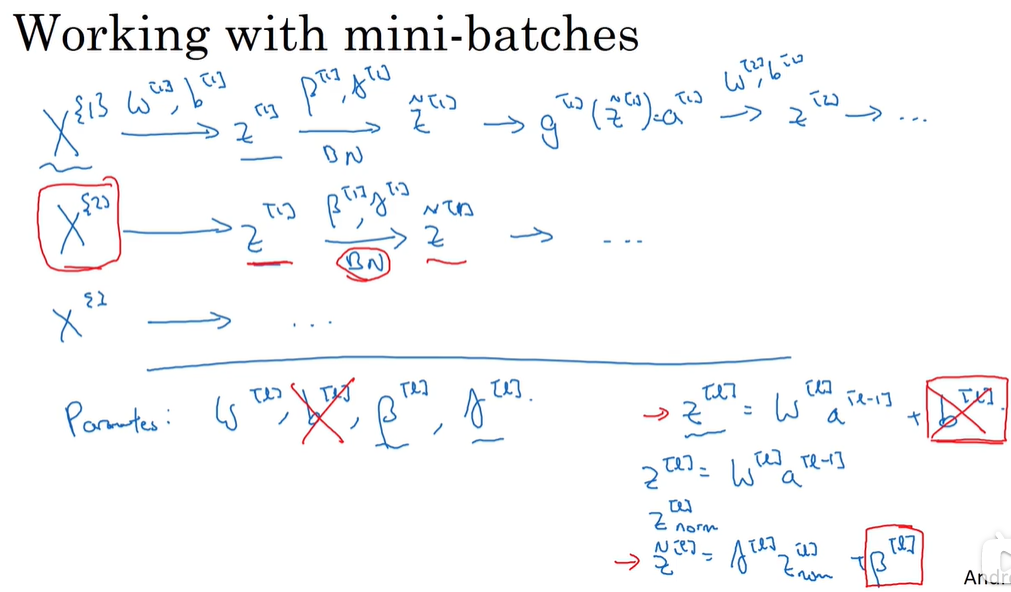 Working with mini-batches
X^{1} W^[1], b^[1] → z^[1] β^[1], γ^[1] → BN z̃^[1] → g^[1](z̃^[1]) = a^[1] W^[2], b^[2] → z^[2] → ...
X^{2} → z^[1] β^[1], γ^[1] → BN z̃^[1] → ...
X^{ → ...
Parameters: W^[l], b^[l], β^[l], γ^[l].
→ z^[l] = W^[l] a^[l-1] + b^[l].
z^[l] = W^[l] a^[l-1]
z^[l] norm
→ z̃^[l] = γ^[l] z^[l] norm + β^[l]